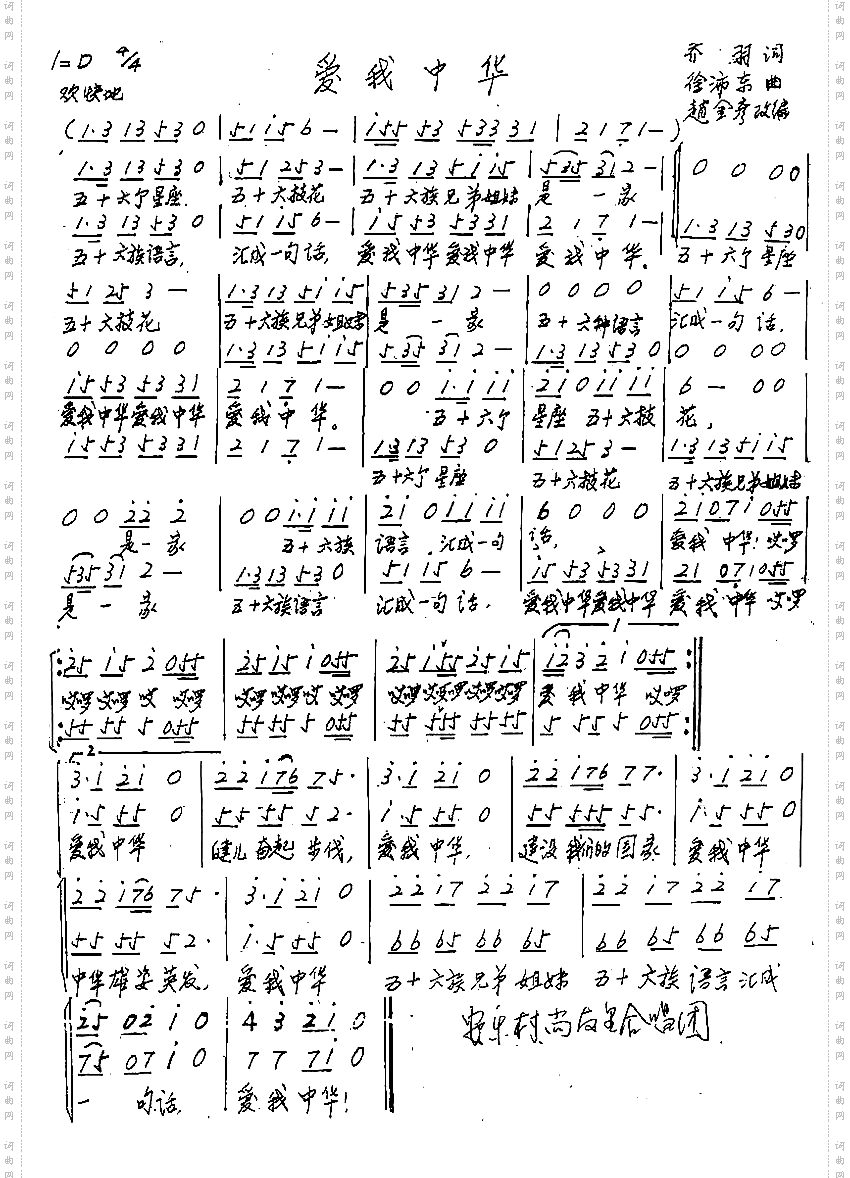 1=D 4/4
爱我中华
乔 羽 词
欢快地
徐沛东 曲
(1·3 13 53 0 | 51 i5 6 — | i55 53 533 31 | 2 1 7 1 — )
1·3 13 53 0 | 51 25 3 — | 1·3 13 51 i5 | 535 31 2 — | 0 0 0 0
五十六个星座. 五十六枝花 五十六族兄弟姐妹 是 一 家
1·3 13 53 0 | 51 i5 6 — | i5 53 53 31 | 2 1 7 1 — | 1·3 13 53 0
五十六族语言, 汇成一句话, 爱我中华爱我中华 爱我中华。 五十六个星座
51 25 3 — | 1·3 13 51 i5 | 535 31 2 — | 0 0 0 0 | 51 i5 6 —
五十六枝花 五十六族兄弟姐妹 是 一 家 五十六种语言 汇成一句话,
0 0 0 0 | 1·3 13 51 i5 | 535 31 2 — | 1·3 13 53 0 | 0 0 0 0
i5 53 53 31 | 2 1 7 1 — | 0 0 i·i ii | 2i 0i ii ii | 6 — 0 0
爱我中华爱我中华 爱我中华。 五十六个 星座 五十六枝 花,
i5 53 53 31 | 2 1 7 1 — | 1·3 13 53 0 | 51 25 3 — | 1·3 13 5i i5
五十六个星座 五十六枝花 五十六族兄弟姐妹
0 0 22 2 | 0 0 i·i ii | 2i 0i ii ii | 6 0 0 0 | 2i 07 i 055
是一家 五十六族 语言 汇成一句 话, 爱我 中华! 哎啰
535 31 2 — | 1·3 13 53 0 | 51 i5 6 — | i5 53 53 31 | 21 07 1 055
是 一 家 五十六族语言 汇成一句话, 爱我中华爱我中华 爱我 中华 哎啰
1
25 i5 2 055 | 25 i5 i 055 | 25 i55 25 i5 | i23 2 i 055
哎啰哎啰 哎 哎啰 哎啰哎啰哎 哎啰 哎啰哎啰啰哎啰哎啰 爱我中华 哎啰
55 55 5 055 | 55 55 5 055 | 55 555 55 55 | 5 55 5 055
2
3·i 2i 0 | 22 i76 75· | 3·i 2i 0 | 22 i76 77· | 3·i 2i 0
i·5 55 0 | 55 55 52· | i·5 55 0 | 55 555 55· | i·5 55 0
爱我中华 健儿奋起 步伐, 爱我中华, 建设我们的国家 爱我中华
22 i76 75· | 3·i 2i 0 | 22 i7 22 i7 | 22 i7 22 i7
55 55 52· | i·5 55 0 | 66 65 66 65 | 66 65 66 65
中华雄姿英发, 爱我中华 五十六族兄弟姐妹 五十六族语言汇成
25 02 i 0 | 4 3 2i 0
75 07 i 0 | 7 7 7i 0
一 句话, 爱我中华!